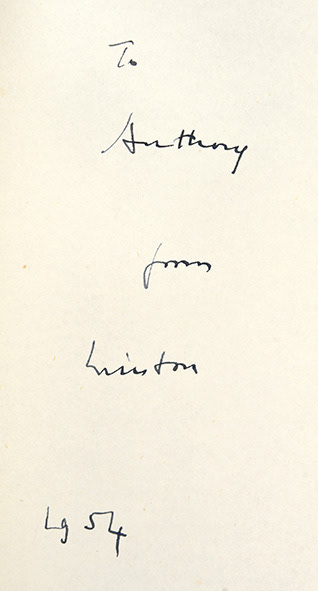 To
Anthony
from
Winston
1954